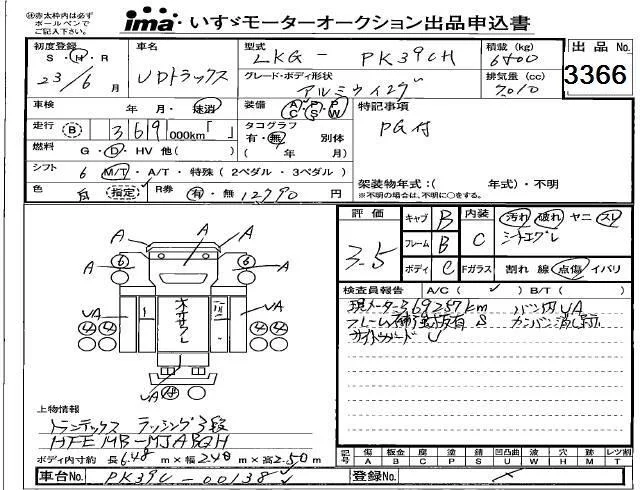 ㊟赤太枠内は必ず
ボールペンで
ご記入下さい。
ima いすゞモーターオークション出品申込書
初度登録 S・H・R
23/6 月
車名
UDトラックス
型式
LKG- PK39CH
積載(kg)
6800
出品 No.
3366
グレード・ボディ形状
アルミウイング
排気量(cc)
7010
車検 年 月・抹消
装備 A/C P/S P/W
特記事項
PG付
走行 (B) 369 000km「 」
タコグラフ
有・無 別体
( 年 月)
燃料 G・D・HV 他( )
シフト 6 M/T・A/T・特殊(2ペダル・3ペダル)
架装物年式:( 年式)・不明
※不明の場合は、不明に○をする。
色 白 指定 R券 有・無 12790 円
評価
3.5
キャブ B
フレーム B
ボディ C
内装
C
汚れ 破れ ヤニ スレ
Fガラス 割れ 線 点傷 イバリ
検査員報告 A/C( ✓ ) B/T( )
現メーター369257km バン内UA
フレーム補 有 S カンバン消し跡
サイドガード U
A A A
⑥ A A ⑥
UA UA
④ ④ ④ ④
UA ⑭
上物情報
トランテックス ラッシング3段
HFEMB-MJABQH
ボディ内寸約 長6.48 m×幅2.40 m×高2.50 m
記号 傷 A 板金 B 腐 C 塗 P 錆 S 凹凸曲 U 波 W 穴 H 跡 M レツ割 T
車台No. PK39C-00138
登録No.